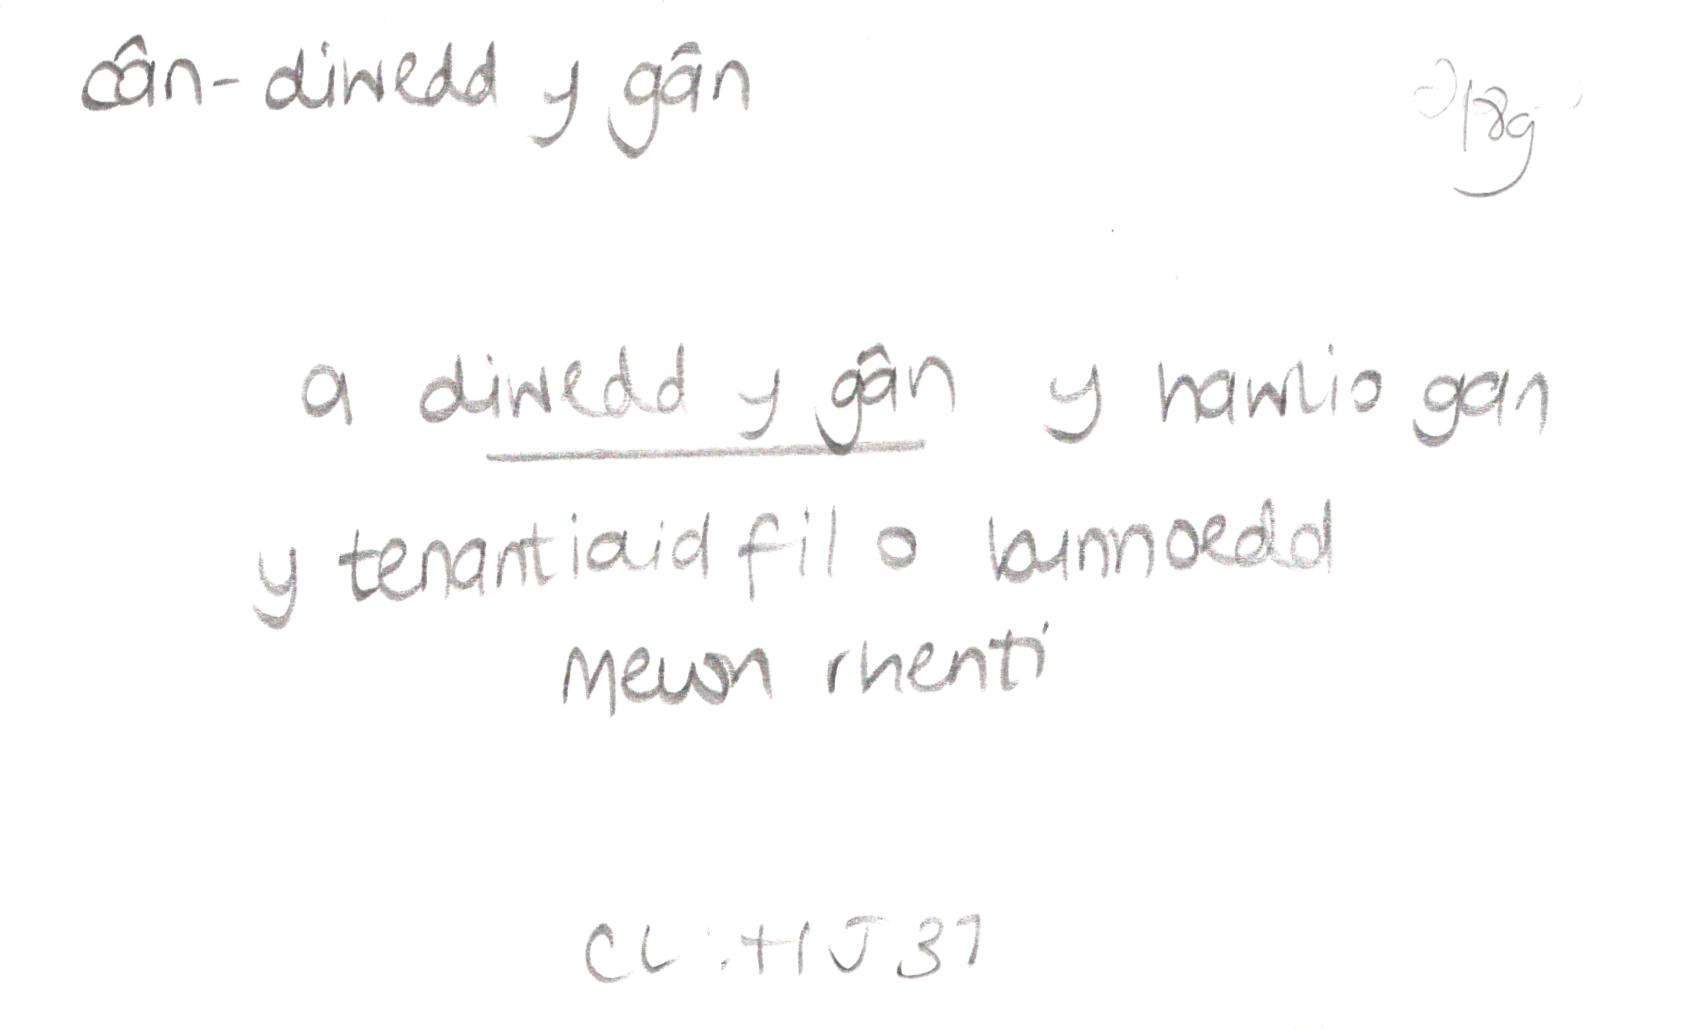 cân - diwedd y gân
a diwedd y gân y hawlio gan
y tenantiaid fil o bunnoedd
mewn rhenti
CL:HJ 37